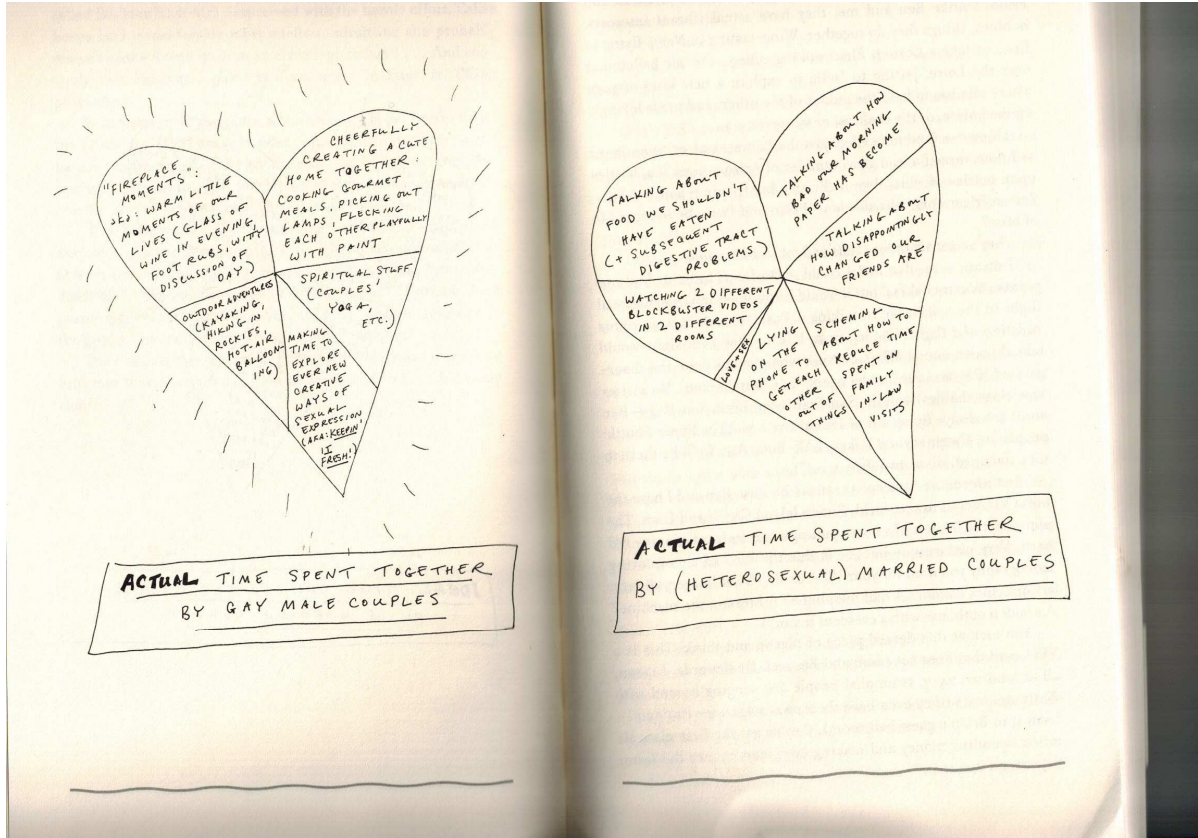 "FIREPLACE
MOMENTS":
aka: WARM LITTLE
MOMENTS OF OUR
LIVES (GLASS OF
WINE IN EVENING,
FOOT RUBS, WITTY
DISCUSSION OF
DAY)
CHEERFULLY
CREATING A CUTE
HOME TOGETHER:
COOKING GOURMET
MEALS, PICKING OUT
LAMPS, FLECKING
EACH OTHER PLAYFULLY
WITH PAINT
OUTDOOR ADVENTURES
(KAYAKING,
HIKING IN
ROCKIES,
HOT-AIR
BALLOON-
ING)
MAKING
TIME TO
EXPLORE
EVER NEW
CREATIVE
WAYS OF
SEXUAL
EXPRESSION
(AKA: KEEPIN'
IT
FRESH!)
SPIRITUAL STUFF
(COUPLES'
YOGA,
ETC.)
ACTUAL TIME SPENT TOGETHER
BY GAY MALE COUPLES
TALKING ABOUT
FOOD WE SHOULDN'T
HAVE EATEN
(+ SUBSEQUENT
DIGESTIVE TRACT
PROBLEMS)
TALKING ABOUT HOW
BAD OUR MORNING
PAPER HAS BECOME
TALKING ABOUT
HOW DISAPPOINTINGLY
CHANGED OUR
FRIENDS ARE
WATCHING 2 DIFFERENT
BLOCKBUSTER VIDEOS
IN 2 DIFFERENT
ROOMS
LOVE + SEX
LYING
ON THE
PHONE TO
GET EACH
OTHER
OUT OF
THINGS
SCHEMING
ABOUT HOW TO
REDUCE TIME
SPENT ON
FAMILY
IN-LAW
VISITS
ACTUAL TIME SPENT TOGETHER
BY (HETEROSEXUAL) MARRIED COUPLES